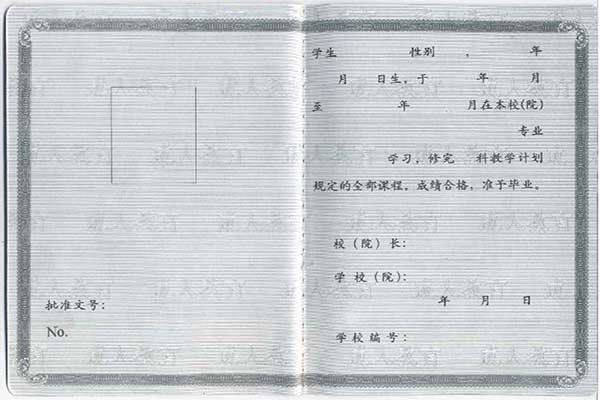 批准文号：
No.
学生 性别 ， 年
月 日生，于 年 月
至 年 月在本校(院)
专业
学习，修完 科教学计划
规定的全部课程，成绩合格，准予毕业。
校（院）长：
学 校（院）：
年 月 日
学 校 编 号：